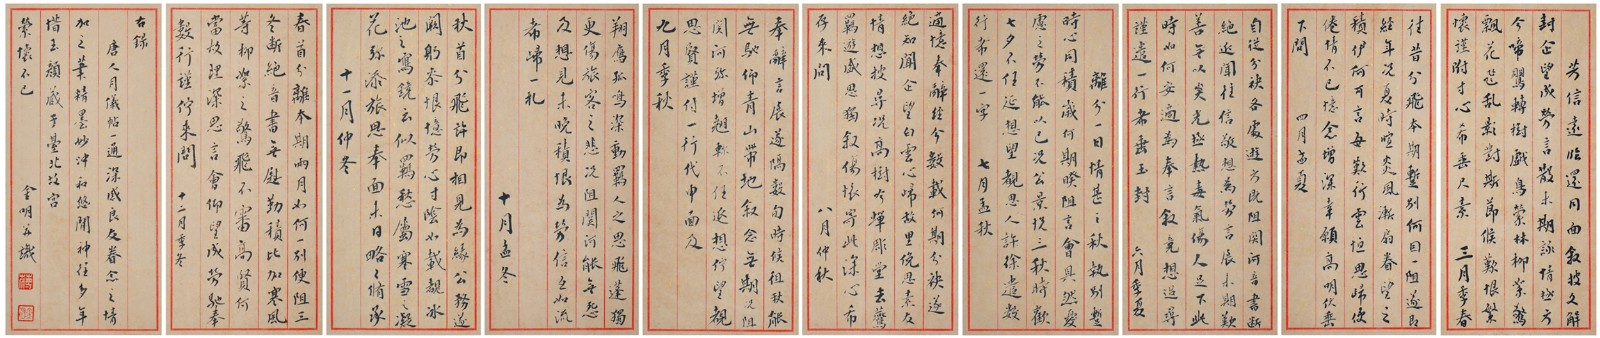 芳信遠臨還同面敘披文解
封企望成勞言散未期詠情盛方
今啼鶯轉樹戲鳥縈林柳葉鶩
飄花從亂影對斯節候歎恨繁
懷謹附寸心希垂尺素　三月季春
往昔分飛本期蹔別何因一阻遂即
經年況夏時暄炎風漸扇眷望之
積伊何可言每歎行雲恒思歸便
倦情不已憶念增深幸願高明伏垂
下問　四月孟夏
自從分袂各處遊方既阻關河音書斷
絕近聞柱信敬想為勞言展未期歎
善無以矣光盛熱毒氣傷人足下此
時如何安適為奉言敘竟想追尋
謹遣一行希垂玉封　六月季夏
離分一日情甚三秋執別蹔
時心同積歲何期暌阻言會莫然發
慮之勞不能以已況公景投三秋時歡
七夕不任延想望覩思人許徐遣數
行希還一字　七月孟秋
適憶奉辭經今數載何期分袂遂
絕知聞企望白雲心啼故里傍思素友
情想披尋況高樹尒輝彫堂去鶩
羈遊感思獨敘傷悵寄此深心希
存來問　八月仲秋
奉辭言展遂隔數旬時候徂秋能
無馳仰青山帶地敘念無期況阻
關河弥增翹軫不任延想佇望覯
思賢謹付一行代申面及
九月季秋
翔鷹孤鳥深動羈人之思飛蓬獨
更傷旅客之悲況阻關河能無愁
及想見未晚積恨為勞信至如流
希歸一札
十月孟冬
秋首分飛許即相見為緣公務遂
闕躬參恨憶勞心寸陰如載覩冰
池之寫鏡云似羈愁屬寒雪凝
花弥添旅思奉面未日略之脩承
十一月仲冬
春首分離本期兩月如何一別便阻三
冬斷絕音書無慰勤積比加寒風
等柳絮之驚飛不審高賢何
當攸理深思言會仰望成勞馳奉
數行謹佇來問　十二月季冬
右錄
唐人月儀帖一通深感良友眷念之情
加之筆精墨妙沖和悠閒神往多年
惜玉顏藏于臺北故宮
縈懷不已
金明并識